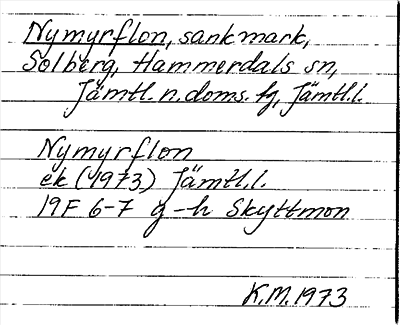 Nymyrflon, sankmark,
Solberg, Hammerdals sn,
Jämtl. n. doms. fg, Jämtl.l.
Nymyrflon
ek (1973) Jämtl.l.
19F 6-7 g-h Skyttmon
K.M. 1973